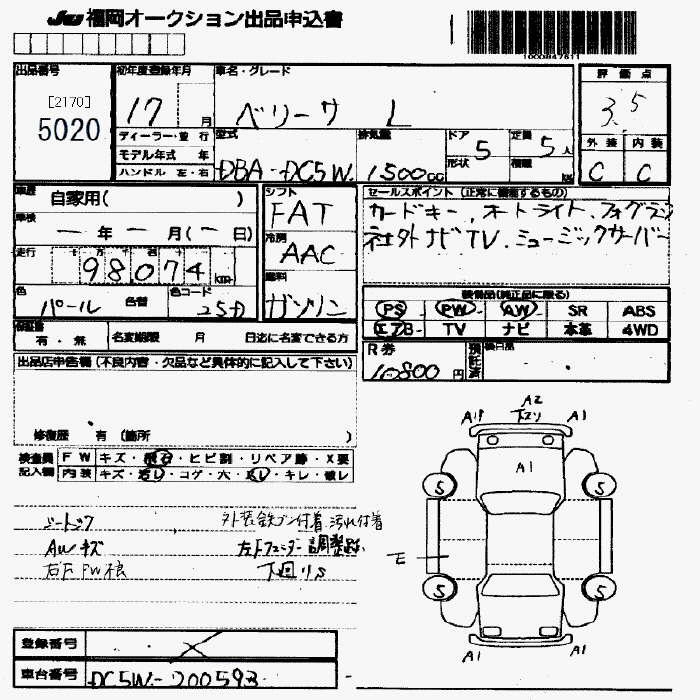 JU 福岡オークション出品申込書
1000847611
出品番号
[2170]
5020
初年度登録年月
17 月
車名・グレード
ベリーサ L
評価点
3.5
外装 内装
C C
ディーラー・並行
モデル年式 年
ハンドル 左・右
型式
DBA-DC5W
排気量
1500cc
ドア 形状
5
定員
5人
積載
kg
車歴
自家用( )
車検
ー年ー月(ー日)
走行
98074 km
色
パール
色替
色コード
25D
シフト
FAT
冷房
AAC
燃料
ガソリン
セールスポイント(正常に機能するもの)
カードキー、オートライト、フォグラン
社外ナビTV、ミュージックサーバー
装備品(純正品に限る)
PS PW AW SR ABS
エアB TV ナビ 本革 4WD
保証書
有・無
名変期限 月 日迄に名変できる方
R券
10800円
預託済
後日品
出品店申告欄(不良内容・欠品など具体的に記入して下さい)
修復歴 有 (箇所 )
検査員記入欄
FW キズ・飛石・ヒビ割・リペア跡・X要
内装 キズ・汚レ・コゲ・穴・スレ・キレ・破レ
シートスック
AWキズ
外装鉄プン付着 汚れ付着
左Fフェンダー調整跡
下回りS
A2
下スリ
A1P
A1
A1
5
5
E
5
5
A1
A1
登録番号
車台番号 DC5W-200593